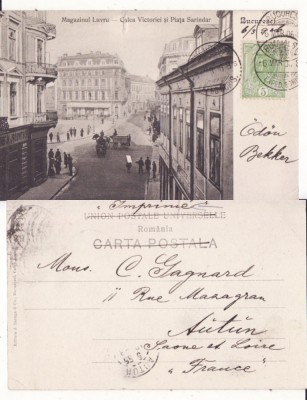 Magazinul Luvru — Calea Victoriei și Piața Sarindar
București
5
Ödön
Bekker
"Imprimé"
UNION POSTALE UNIVERSELLE
România
CARTA POSTALA
Mons. C. Gagnard
11 Rue Mazagran
Autun
Saone et Loire
"France"